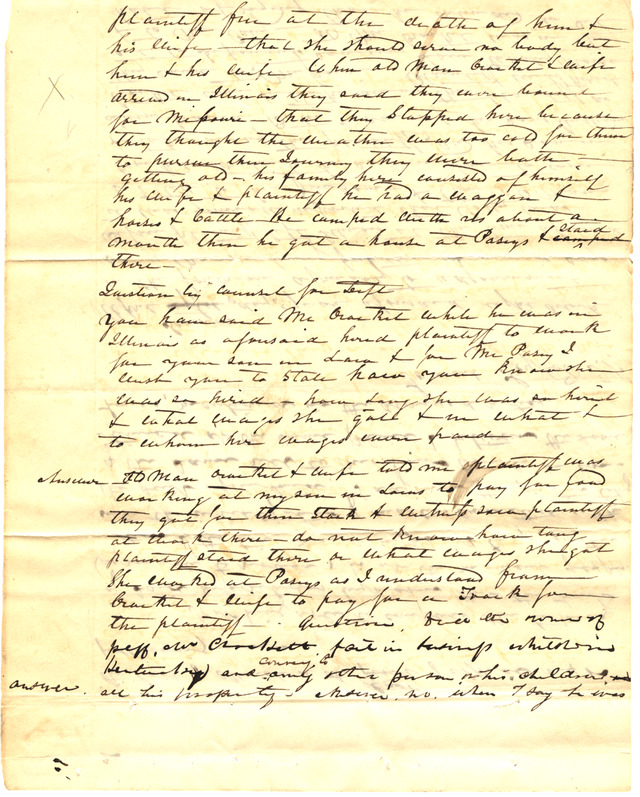 plaintiff free at the death of him &
his wife – that she should serve no body but
him & his wife When old Man Crocket & wife
arrived in Illinois they said they were bound
for Missouri – that they stopped here because
they thought the weather was too cold for them
to pursue their Journey they were both –
getting old – his family here consisted of himself
his wife & plaintiff he had a waggon &
horses & Cattle – He camped with us about a
month then he got a house at Poseys & staid camped
there –
Question by counsel for Deft
You have said Mr Crocket while he was in
Illinois as aforesaid hired plaintiff to work
for your son in Law & for Mr Posey I
wish you to state how you know she
was so hired – how long she was so hired
& what wages she got & in what &
to whom her wages were paid –
Answer – Old Man Crocket & wife told me plaintiff was
working at my son in Laws to pay for food
they got for their Stock & selves saw plaintiff
at work there – do not know how long
plaintiff staid there or what wages she got
She worked at Poseys as I understand from
Crocket & wife to pay for a Frock for
the plaintiff. Question. Did the owner of
peff. Mr Crockett, fail in business whilst in
Kentucky and convey to any other person or his children
answer. all his property – Answer. no. when I say he was